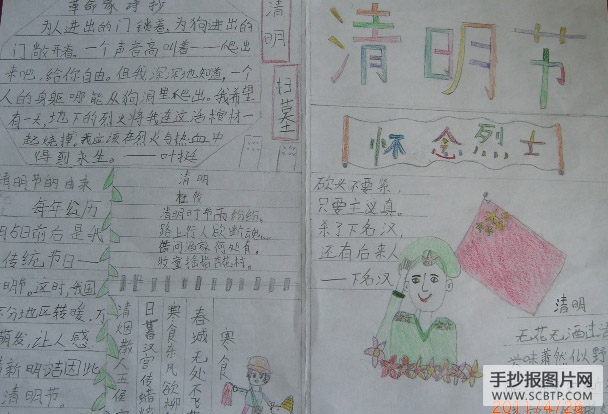 革命家诗抄
为人进出的门锁着,为狗进出的
门敞开着。一个声音高叫着——爬出
来吧,给你自由。但我深深地知道,一个
人的身躯哪能从狗洞里爬出。我希望
有一天,地下的烈火将我连这活棺材一
起烧掉,我应该在烈火与热血中
得到永生。——叶挺
清明
扫墓
清明节的由来
每年公历
月5日前后是我
传统节日——
明节。这时,我国
部分地区转暖,万
萌发,让人感
清新明洁因此
清明节。
清明
杜牧
清明时节雨纷纷,
路上行人欲断魂。
借问酒家何处有,
牧童摇指杏花村。
寒食
春城无处不飞
寒食东风欲柳
日暮汉宫传蜡
清烟散入五
清明节
怀念烈士
砍头不要紧,
只要主义真。
杀了下名汉,
还有后来人
——下名汉
清明
无花无酒过
兴味萧然似野
手抄报图片网
WWW.SCBTP.COM